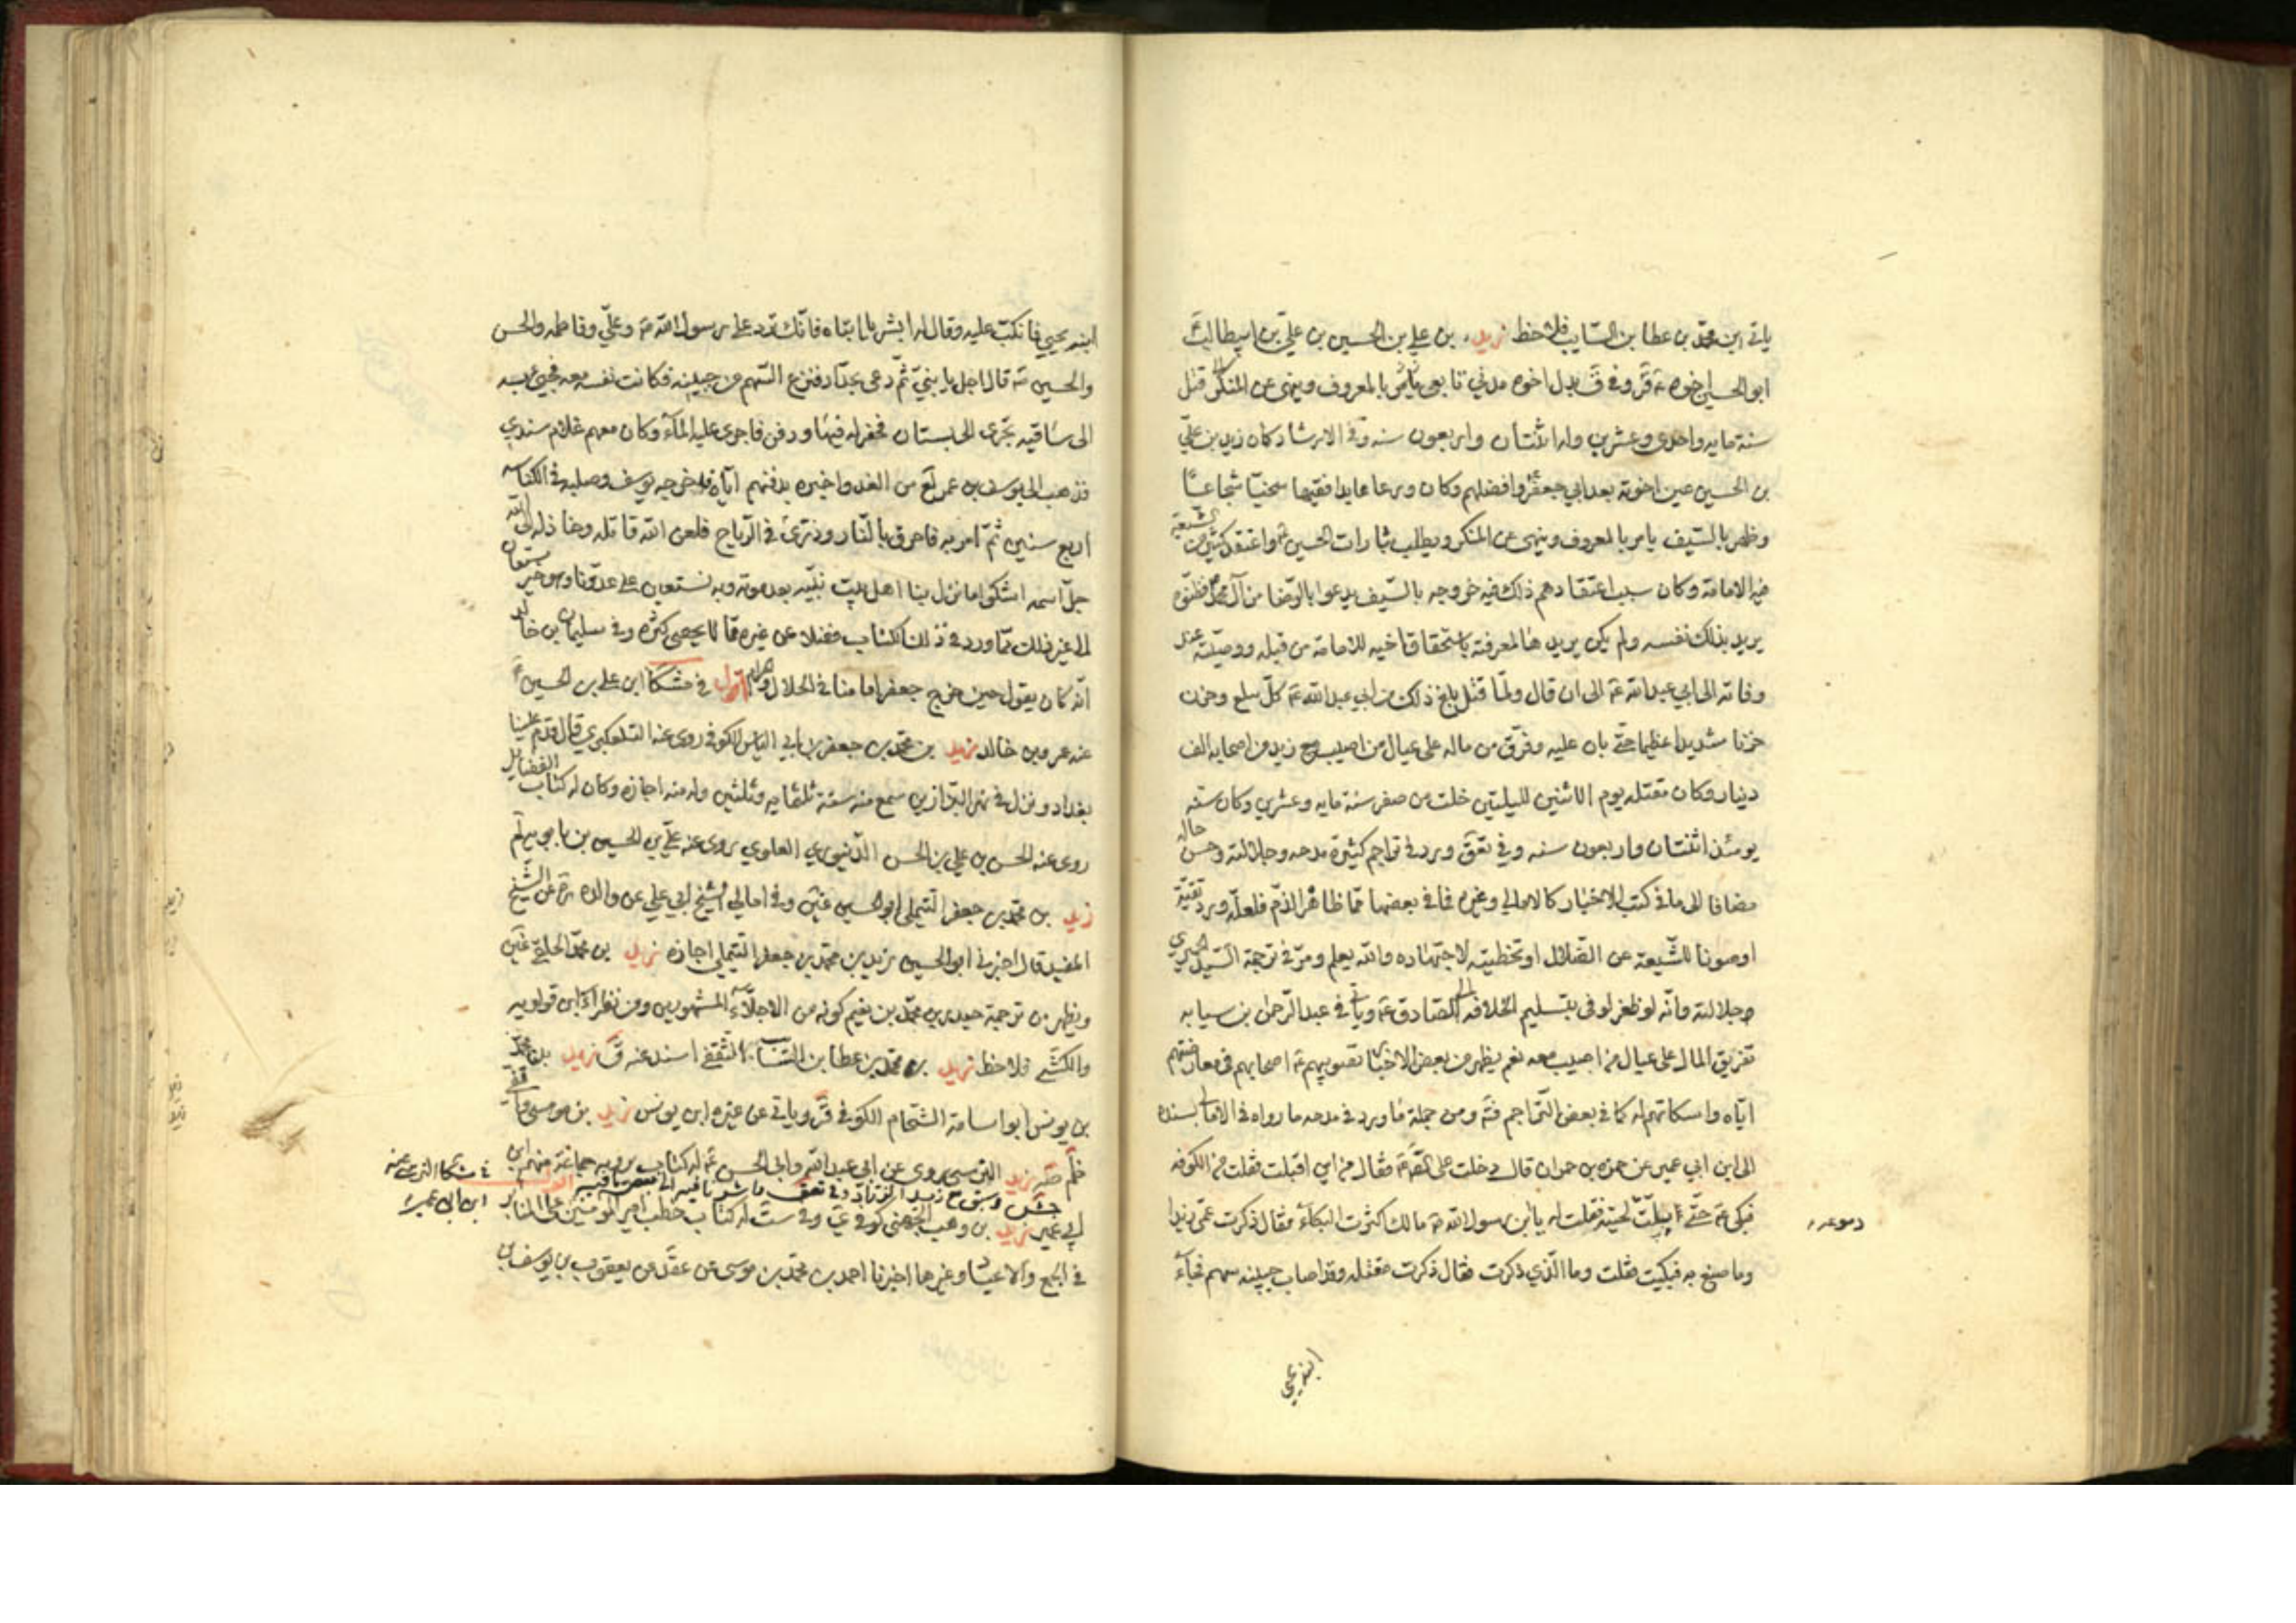 ياتى ابن محمد بن عطا بن السايب فلاحظ زيد بن علي بن الحسين بن علي بن ابيطالب
ابو الحسين اخوه ع قر وفي ق بدل اخوه مدني تابعي يأمر بالمعروف وينهى عن المنكر قتل
سنة مايه واحدى وعشرين وله اثنتان واربعون سنه وفي الارشاد كان زيد بن علي
بن الحسين عين اخوته بعد ابي جعفر وافضلهم وكان ورعا عابدا فقيها سخيا شجاعا
وظهر بالسيف يامر بالمعروف وينهى عن المنكر ويطلب بثارات الحسين ع واعتقد كثير من الشيعة
فيه الامامة وكان سبب اعتقادهم ذلك فيه خروجه بالسيف يدعوا بالرضا من آل محمد فظنوه
يريد بذلك نفسه ولم يكن يريدها لمعرفته باستحقاق اخيه للامامة من قبله ووصيته عند
وفاته الى ابي عبد الله ع الى ان قال ولما قتل بلغ ذلك من ابي عبد الله ع كل مبلغ وحزن
حزنا شديدا عظيما حتى بان عليه وفرق من ماله على عيال من اصيب مع زيد من اصحابه الف
دينار وكان مقتله يوم الاثنين لليلتين خلت من صفر سنة مايه وعشرين وكان سنه
يومئذ اثنتان واربعون سنه وفي تعق ورد في تراجم كثيرة مدحه وجلالته وحسن حاله
مضافا الى ما في كتب الاخبار كالامالي وغيره فما في بعضها مما ظاهره الذم فلعله ورد تقية
او صونا للشيعة عن الضلال او تخطيته لاجتهاده والله يعلم ومر في ترجمة السيد الحميري
وجلالته وانه لو ظفر لوفى بتسليم الخلافه الى الصادق ع وياتي في عبد الرحمن بن سيابه
تفريق المال على عيال من اصيب معه نعم يظهر من بعض الاخبار تصويبهم ع اصحابهم في معارضتهم
اياه واسكاتهم له كما في بعض التراجم فته ومن جملة ما ورد في مدحه ما رواه في الامالي بسنده
الى ابن ابي عمير عن حمزه بن حمران قال دخلت على الصادق ع فقال من اين اقبلت فقلت من الكوفه
فبكى ع حتى بلت لحيته فقلت له يابن رسول الله ص مالك كثرت البكاء فقال ذكرت عمى زيدا
دموعه
وما صنع به فبكيت فقلت وما الذي ذكرت فقال ذكرت مقتله وقد اصاب جبينه سهم فجاء
ابنه يحيى
ابنه يحيى فانكب عليه وقال له ابشر يا ابتاه فانك ترد على رسول الله ص وعلي وفاطمه والحسن
والحسين ع قال اجل يا بني ثم دعى بحداد فنزع السهم من جبينه فكانت نفسه معه فجيئ به
الى ساقيه تجرى الى بستان فحفر له فيها ودفن فاجرى عليه الماء وكان معهم غلام سندي
فذهب الى يوسف بن عمر لع من الغد واخبره بدفنهم اياه فاخرجه يوسف وصلبه في الكناسه
اربع سنين ثم امر به فاحرق بالنار وذرى في الرياح فلعن الله قاتله وخاذله الى الله
جل اسمه اشكو ما نزل بنا اهل بيت نبيه بعد موته وبه نستعين على عدونا وهو خير مستعان
الى غير ذلك مما ورد في ذلك الكتاب فضلا عن غيره مما لا يحصى كثره وفي سليمان بن خالد
انه كان يقول حين خرج جعفر امامنا في الحلال والحرام اقول في مشكا ابن علي بن الحسين ع
عنه عمرو بن خالد زيد بن محمد بن جعفر بن ابي الياس الكوفى روى عنه التلعكبري قال قدم علينا
بغداد ونزل في نهر البزازين سمع منه سنة ثلثمايه وثلثين وله منه اجازه وكان له كتاب الفضايل
روى عنه الحسن بن علي بن الحسن الدينوري العلوي روى عنه علي بن الحسين بن بابويه لم
زيد بن محمد بن جعفر التيملي ابو الحسين غين وفي امالي الشيخ ابي علي عن والده ره عن الشيخ
المفيد قال اخبرني ابو الحسين زيد بن محمد بن جعفر التيملي اجازه زيد بن محمد الحلقى غين
ويظهر من ترجمة حيدر بن محمد بن نعيم كونه من الاجلاء المشهورين ومن نظراء ابن قولويه
والكشي فلاحظ زيد بن محمد بن عطا بن السائب الثقفي اسند عنه ق زيد
بن يونس ابو اسامة الشحام الكوفي قر وياتى عن غيره ابن يونس زيد بن موسى
زيد النرسي روى عن ابي عبد الله وابى الحسن ع له كتاب يرويه جماعة منهم ابن
في مشكا النرسى عنه
ابن ابى عمير
ابي عمير زيد بن وهب الجهني كوفي ي وفي ست له كتاب خطب امير المومنين على المنابر
في الجمع والاعياد وغيرها اخبرنا احمد بن محمد بن موسى عن عقد عن يعقوب بن يوسف بن